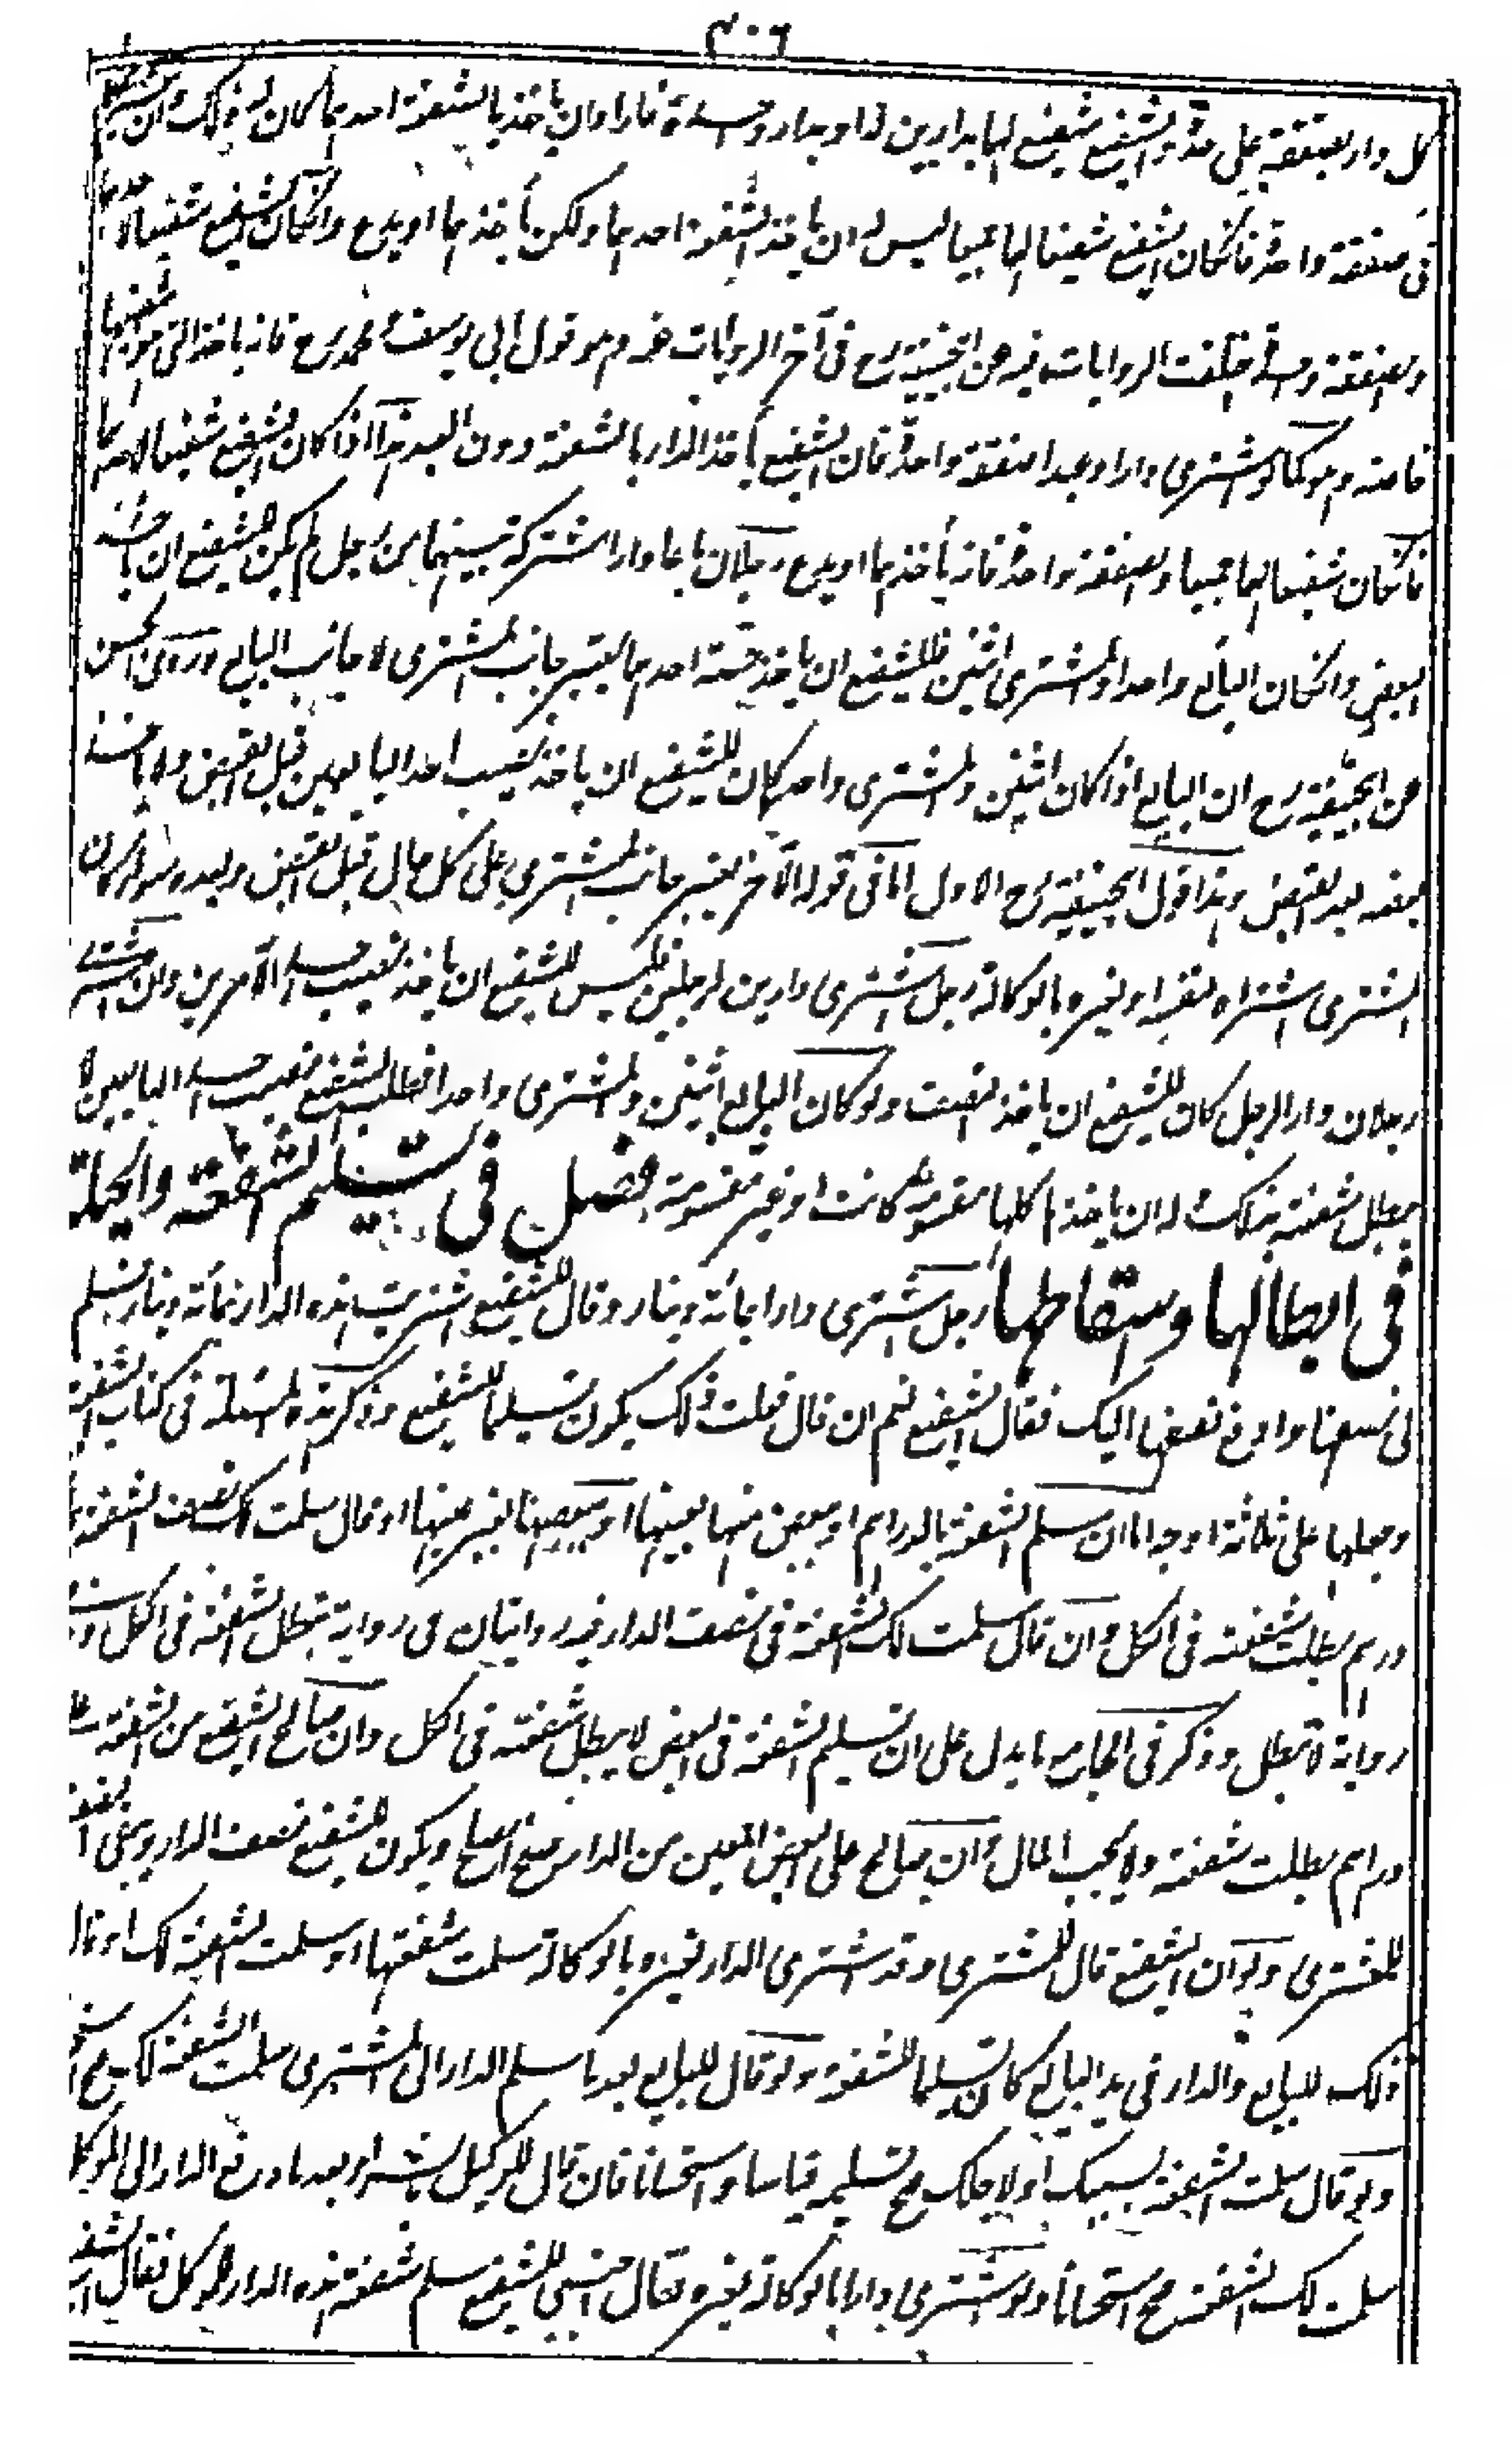 ٤٠٦
كل دار بصفقة على حدة والشفيع شفيع لهما بدارين له او بدار واحدة فاراد ان ياخذ بالشفعة احدهما كان له ذلك وان
فى صفقة واحدة فانكان الشفيع شفيعا لهما جميعا ليس له ان ياخذ بالشفعة احدهما ولكن يأخذهما او يدع وانكان الشفيع شفيعا لاحدهما
والصفقة واحدة اختلفت الروايات فيه عن ابيحنيفة رح فى آخر الروايات عنه وهو قول ابى يوسف ومحمد رح فانه ياخذ التى هو شفيعها
خاصة وهو كما لو اشترى دارا وعبدا صفقة واحدة فان الشفيع يأخذ الدار بالشفعة دون العبد هذا اذا كان الشفيع شفيعا لاحدهما
فانكان شفيعا لهما جميعا والصفقة واحدة فانه يأخذهما او يدع رجلان باعا دارا مشتركة بينهما من رجل لم يكن للشفيع ان ياخذ
البعض وانكان البائع واحدا والمشترى اثنين فللشفيع ان ياخذ حصة احدهما يعتبر جانب المشترى لا جانب البائع وروى الحسن
عن ابيحنيفة رح ان البايع اذا كان اثنين والمشترى واحد كان للشفيع ان ياخذ نصيب احد البايعين قبل القبض ولا ياخذ
بعضه بعد القبض وهذا قول ابيحنيفة رح الاول اما فى قوله الآخر يعتبر جانب المشترى على كل حال قبل القبض وبعده سواء كان
المشترى اشتراه لنفسه او لغيره بالوكالة رجل اشترى دارين لرجلين فليس للشفيع ان ياخذ نصيب احد الآمرين وان اشترى
رجلان دارا لرجل كان للشفيع ان ياخذ نصيب ولو كان البايع اثنين والمشترى واحدا فطلب الشفيع نصيب احد البايعين لا
يبطل شفعته بذلك وله ان ياخذها كلها مقسومة كانت او غير مقسومة فصل فى تسليم الشفعة والحيلة
فى ابطالها واسقاطها رجل اشترى دارا بمائة دينار وقال للشفيع اشتريت هذه الدار بمائة دينار فسلم
لى نصفها وادفع نصفها اليك فقال الشفيع نعم ان قال فعلت ذلك يكون تسليما للشفيع وذكر هذه المسئلة فى كتاب الشفعة
وجعلها على ثلاثة اوجه اما ان سلم الشفعة بالدراهم او ببعض منها بعينها او ببعضها بغير عينها او قال سلمت لك نصف الشفعة
درهم بطلت شفعته فى الكل وان قال سلمت لك الشفعة فى نصف الدار فيه روايتان فى رواية تبطل الشفعة فى الكل وفى
رواية لا تبطل وذكر فى الجامع ما يدل على ان تسليم الشفعة فى البعض لا يبطل شفعته فى الكل وان صالح الشفيع من الشفعة على
دراهم بطلت شفعته ولا يجب المال وان صالح على البعض المعين من الدار صح الصلح ويكون للشفيع نصف الدار ويبقى النصف
للمشترى ولو ان الشفيع قال للمشترى وقد اشترى الدار لغيره بالوكالة سلمت شفعتها او سلمت الشفعة لك او قال
ذلك للبايع والدار فى يد البايع كان تسليما للشفعة ولو قال للبايع بعد ما سلم الدار الى المشترى سلمت الشفعة لك صح
ولو قال سلمت الشفعة بسببك او لاجلك صح تسليمه قياسا واستحسانا فان قال للوكيل بالشراء بعد ما دفع الدار الى الموكل
سلمت لك الشفعة صح استحسانا ولو اشترى دارا بالوكالة لغيره فقال اجنبى للشفيع سلم شفعة هذه الدار للموكل فقال